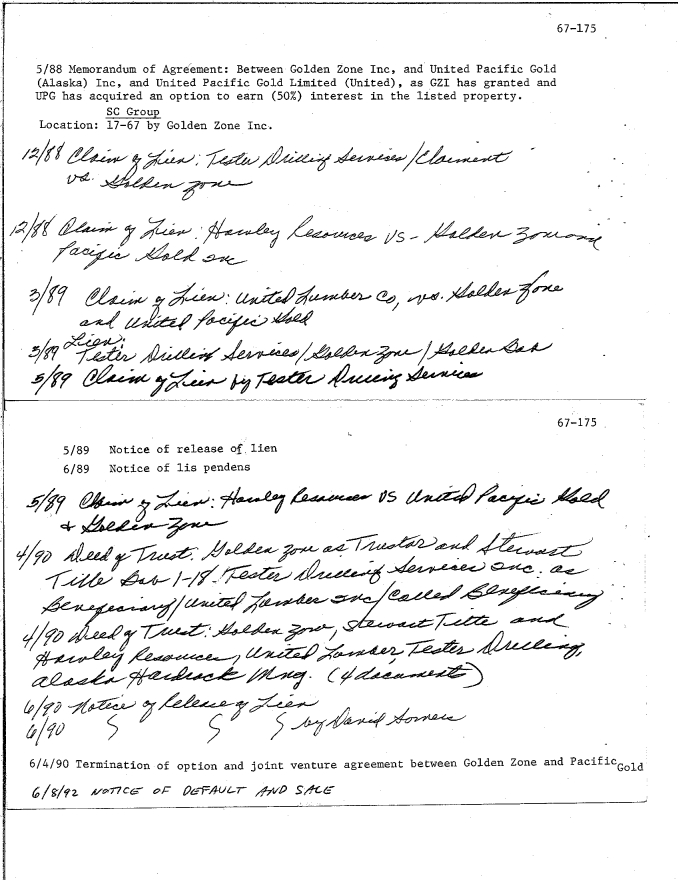 67-175
5/88 Memorandum of Agreement: Between Golden Zone Inc, and United Pacific Gold
(Alaska) Inc, and United Pacific Gold Limited (United), as GZI has granted and
UPG has acquired an option to earn (50%) interest in the listed property.
SC Group
Location: 17-67 by Golden Zone Inc.
12/88 Claim of Lien: Tester Drilling Services/Claiment
vs. Golden zone
12/88 Claim of Lien: Hawley Resources VS - Golden Zone and
Pacific Gold Inc
3/89 Claim of Lien: United Lumber Co, vs. Golden Zone
and United Pacific Gold
Lien:
3/89 Tester Drilling Services/Golden Zone/Golden
5/89 Claim of Lien by Tester Drilling Services
67-175
5/89 Notice of release of lien
6/89 Notice of lis pendens
5/89 Claim of Lien: Hawley Resources VS United Pacific Gold
& Golden Zone
4/90 Deed of Trust: Golden zone as Trustor and Stewart
Title 1-18 Tester Drilling Services Inc. as
Beneficiary/United Lumber Inc/Called Beneficiary
4/90 Deed of Trust: Golden Zone, Stewart Title and
Hawley Resources, United Lumber, Tester Drilling,
Alaska Hardrock Mng. (4 documents)
6/90 Notice of Release of Lien
6/90 by David Somers
6/4/90 Termination of option and joint venture agreement between Golden Zone and Pacific Gold
6/8/92 NOTICE OF DEFAULT AND SALE